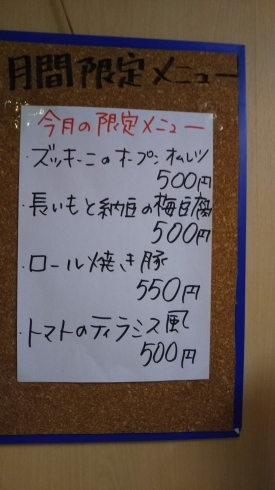 月間限定メニュー
今月の限定メニュー
・ズッキーニのオープンオムレツ
500円
・長いもと納豆の梅豆腐
500円
・ロール焼き豚
550円
・トマトのティラミス風
500円